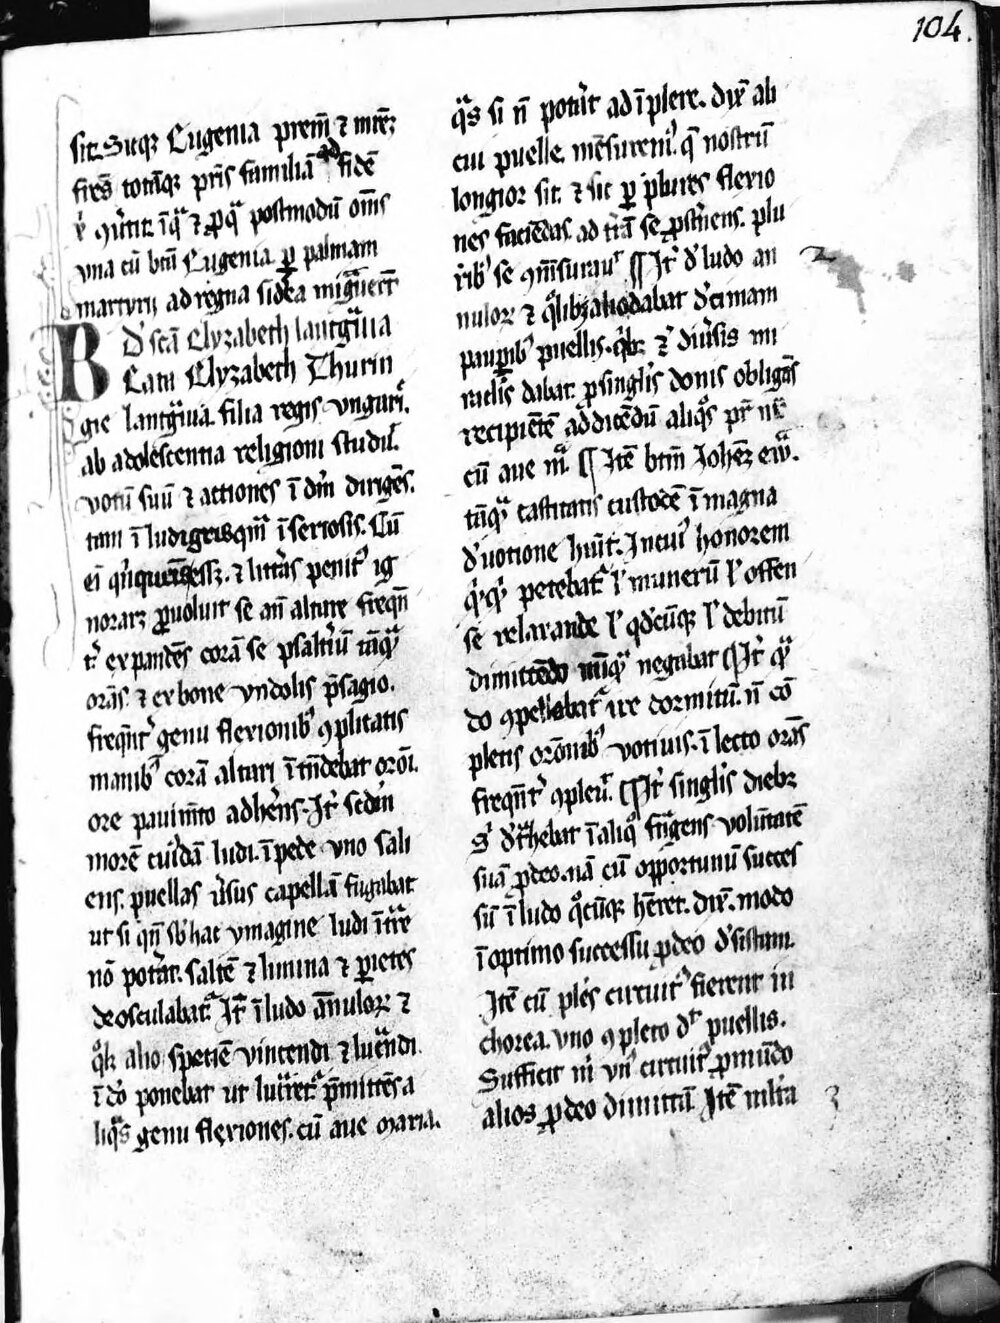 104.
sit. Sicqꝫ Eugenia pr̄em ⁊ mr̄eꝫ
fr̄es totāqꝫ pr̄is familiā ad fidē
una cū btā Eugenia ꝑ palmam
martyrij ad regna sidea migͣuerūt
D̾ scā Elyzabeth lantgͣuia
Beata Elyzabeth Thurin
gie lantgͣuia. filia regis ungari.
ab adolescentia religioni studuit.
votū suū ⁊ actiones ī dn̄m dirigēs.
tam ī ludicris qͣm ī seriosis. Cū
eī quīquēnis essꝫ. ⁊ litt̾as penitꝰ ig
noraret ꝓuoluit se an̄ altare freqn̄
t̾ expandēs corā se psalt̾iū tāqͣ
orās. ⁊ ex bone yndolis p̄sagio.
freqn̄t̾ genu flexionibꝰ ꝯplicatis
manibꝰ corā altari ītēdebat orōi.
ore pauimēto adherēs. Itē secdm
morē cuiꝰdā ludi. ī pede uno sali
ens. puellas ūsus capellā fugabat
ut si qn̄ sb̾ hac ymagine ludi ītrare
nō pot̾at. saltē ⁊ limina ⁊ ꝑietes
deosculabatᷣ. Itē ī ludo ānuloꝝ ⁊
qͦlꝫ alio spetiē vincendi ⁊ lucͣndi
ī dō ponebat ut lucͣretᷣ ꝓmittēs a
liqͣs genu flexiones. cū aue maria.
qͣs si n̄ pot̾it adīplere. dix̄ ali
cui puelle. mēsurem̄ꝰ qͤ nostrū
longior sit. ⁊ sic ꝑ plures flexio
nes faciēdas ad t̾rā se ꝓst̾nens. plu
ribꝰ se ꝯmēsurauit ¶ Itē d̾ ludo an
nuloꝝ ⁊ qͦlibꝫ alio dabat decimam
pauꝑibꝰ puellis. qͥbꝫ ⁊ diūsis mi
nielis dabat. ꝓ singlīs donis obligās
recipiētē ad dicēdū aliqͦs pr̄ nr̄
cū aue mͣ. ¶ Itē btm̄ Johēꝫ ewͣ.
tāqͣ castitatis custodē ī magna
d̾uotione huit. In cuiꝰ honorem
qͥcqͥd petebatᷣ l̾ munerū l̾ offen
se relaxande l̾ qd̾cūqꝫ l̾ debitū
dimittēdo nūqͣ negabat ¶ Itē qͣn
do ꝯpellebatᷣ ire dormitū. n̄ cō
pletis orōnibꝰ votiuis. ī lecto orās
freqn̄t̾ ꝯpleuit. ¶ Itē singlīs diebꝫ
s̾ dethebat ī aliqͦ frāgens volūtatē
suā ꝓ deo. nā cū opportunū succes
sū ī ludo qͦcūqꝫ hēret. dix̄. modo
ī optimo successu ꝓ deo d̾sistam.
Itē cū plēs circuitꝰ fierent in
chorea. uno ꝯpleto dt̄ puellis.
Sufficit m̄ unꝰ circuitꝰ ꝓ mūdo
alios ꝓ deo dimittā Itē